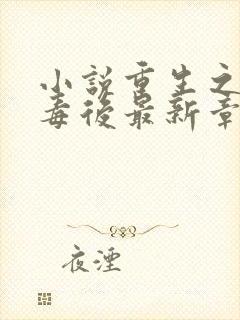 小説重生之
毒後最新章
夜湮